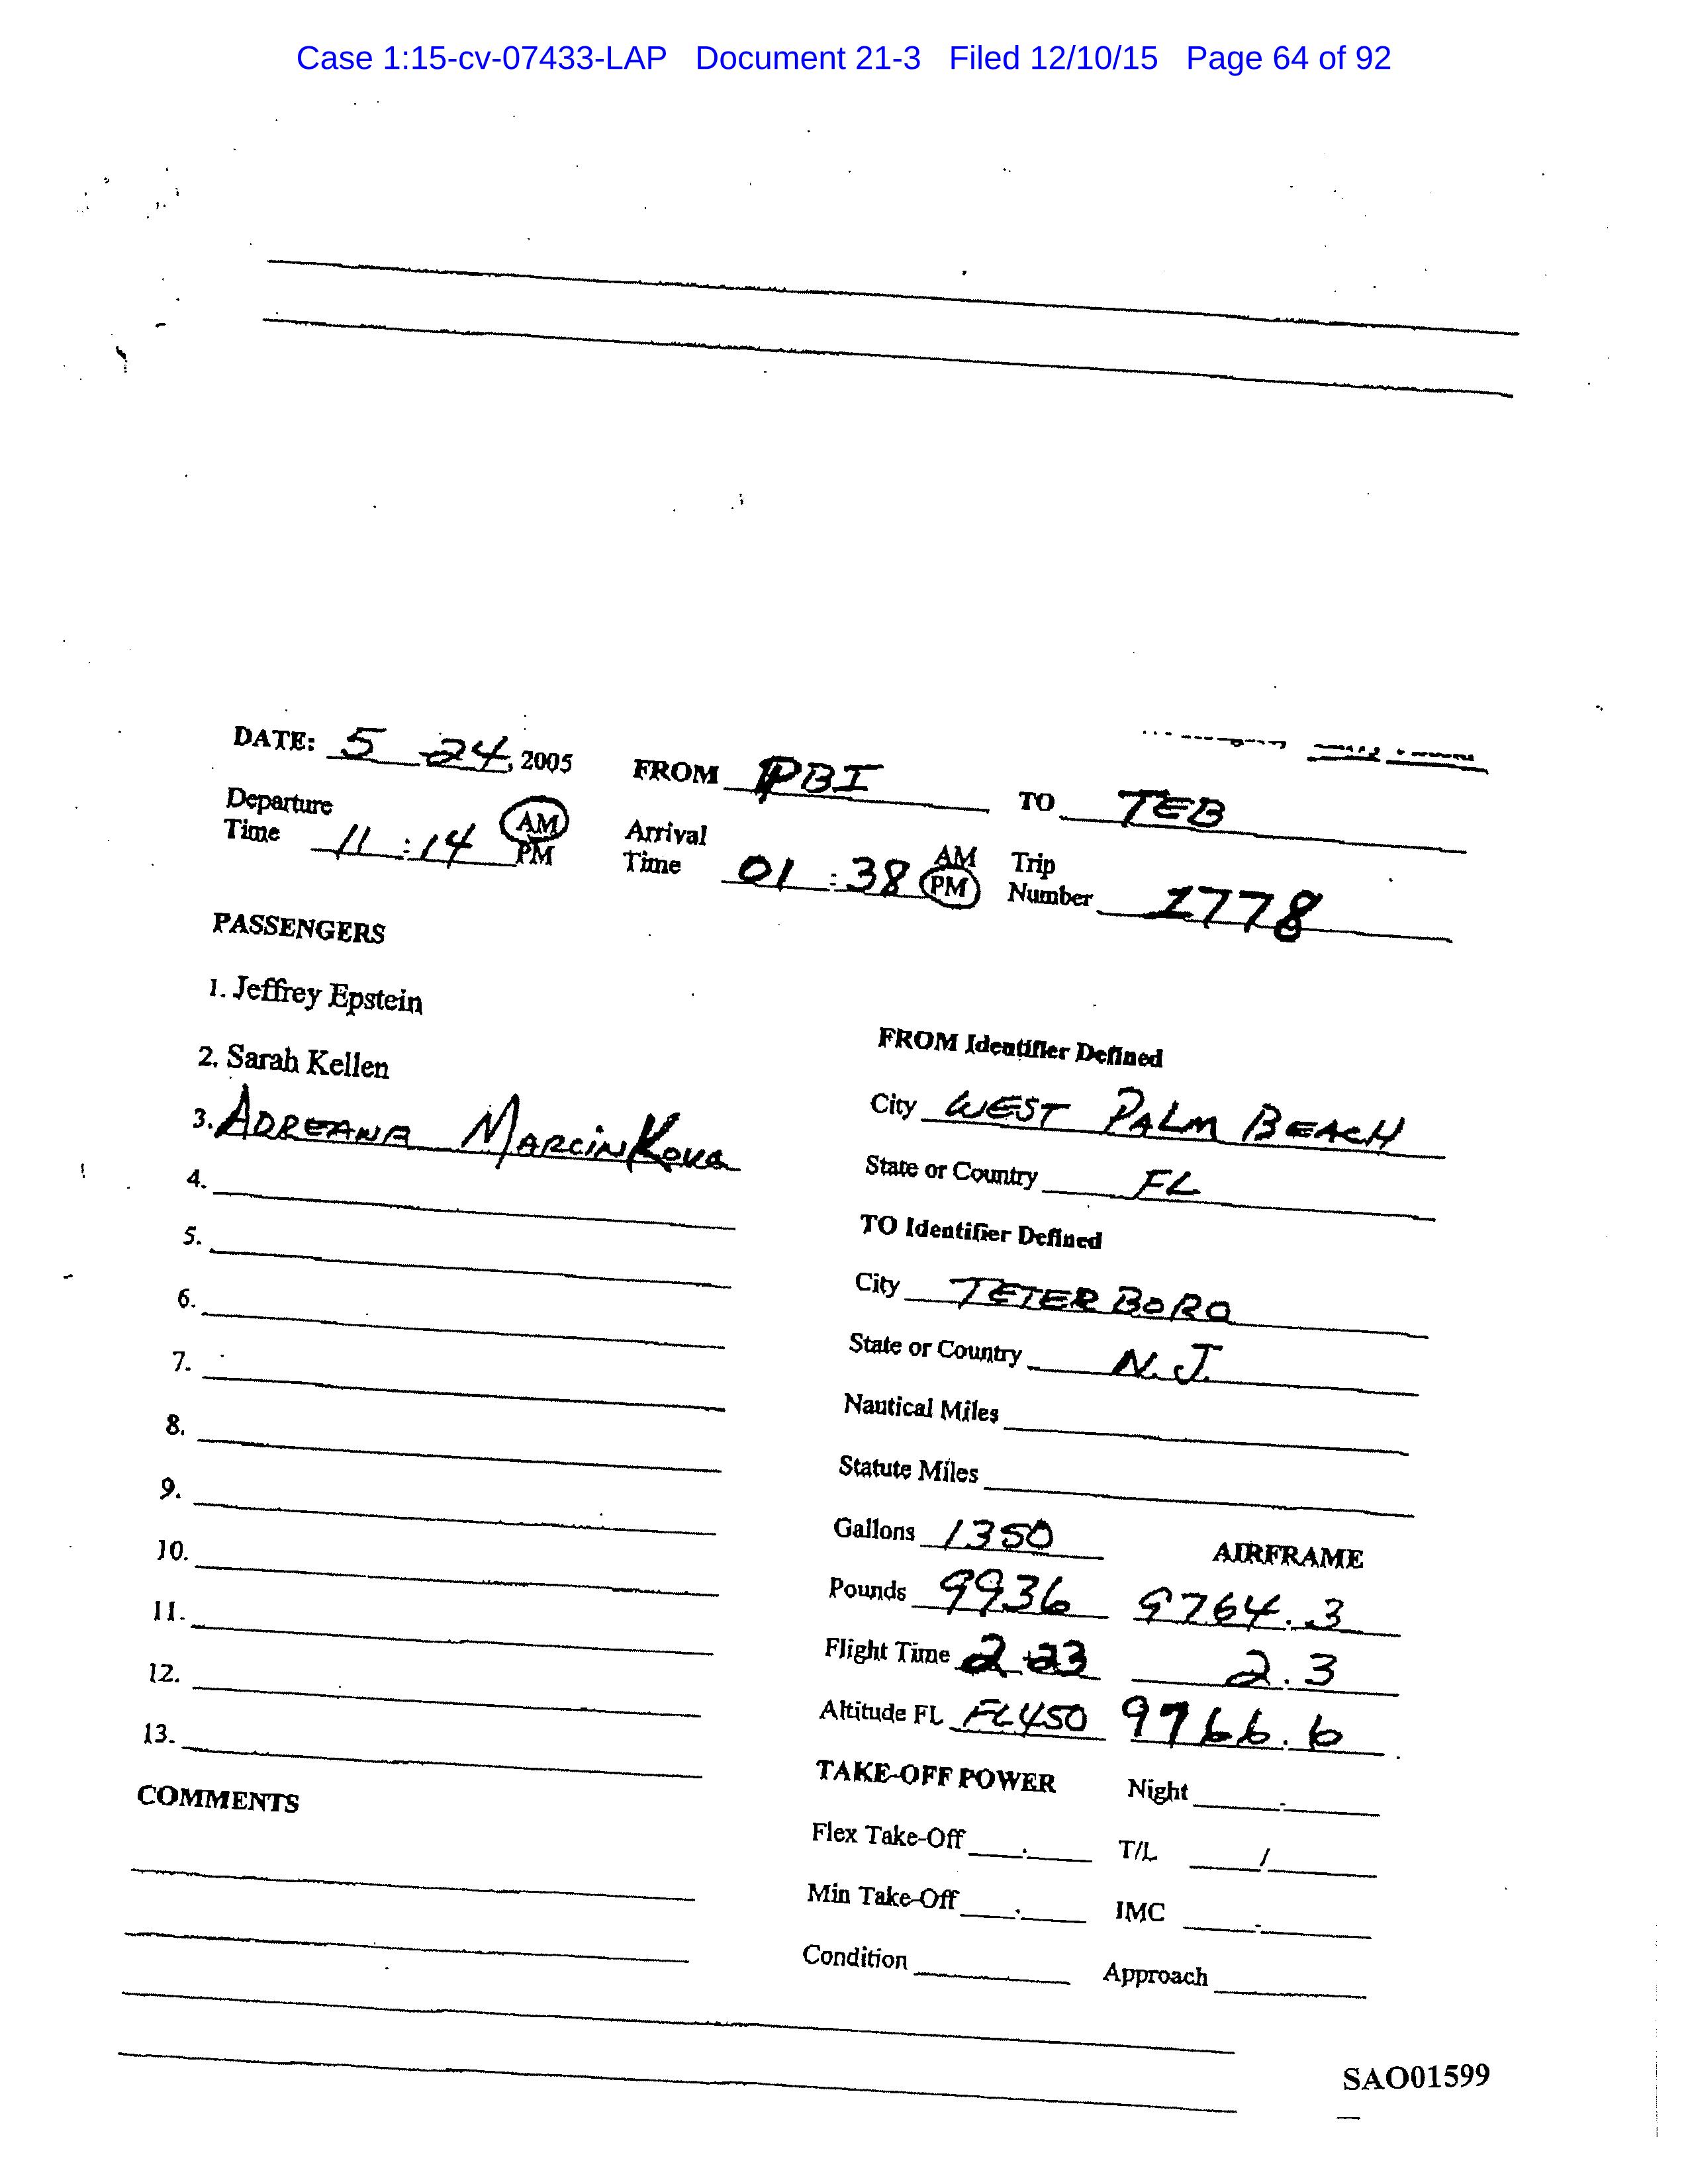 Case 1:15-cv-07433-LAP Document 21-3 Filed 12/10/15 Page 64 of 92
DATE: 5 - 24, 2005 FROM PBI TO TEB
Departure Time 11 : 14 AM PM Arrival Time 01 : 38 AM PM Trip Number 1778
PASSENGERS
1. Jeffrey Epstein
2. Sarah Kellen
3. ADREANA MARCINKOVA
4.
5.
6.
7.
8.
9.
10.
11.
12.
13.
COMMENTS
FROM Identifier Defined
City WEST PALM BEACH
State or Country FL
TO Identifier Defined
City TETERBORO
State or Country N.J.
Nautical Miles
Statute Miles
Gallons 1350 AIRFRAME
Pounds 9936 9764.3
Flight Time 2 + 23 2.3
Altitude FL FL450 9766.6
TAKE-OFF POWER Night :
Flex Take-Off . T/L /
Min Take-Off . IMC :
Condition Approach
SAO01599